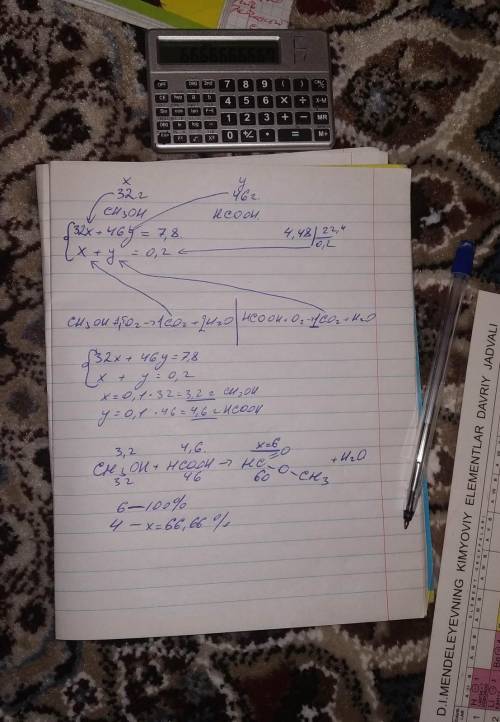 OFF
7 8 9 ( )
4 5 6 × ÷ X-M
1 2 3 + − MR
0 +/- • = M+
x y
32г 46г.
CH3OH HCOOH
{ 32x + 46y = 7,8. 4,48 | 22,4
x + y = 0,2 0,2
HCOOH + O2 → 1CO2 + H2O
{ 32x + 46y = 7,8
x + y = 0,2
x = 0,1 · 32 = 3,2г CH3OH
y = 0,1 · 46 = 4,6г HCOOH
3,2 4,6. x=6
CH3OH + HCOOH → HC=O–O–CH3 + H2O
32 46 60
6 — 100%
4 — x = 66,66 %
D.I.MENDELEYEVNING KIMYOVIY ELEMENTLAR DAVRIY JADVALI